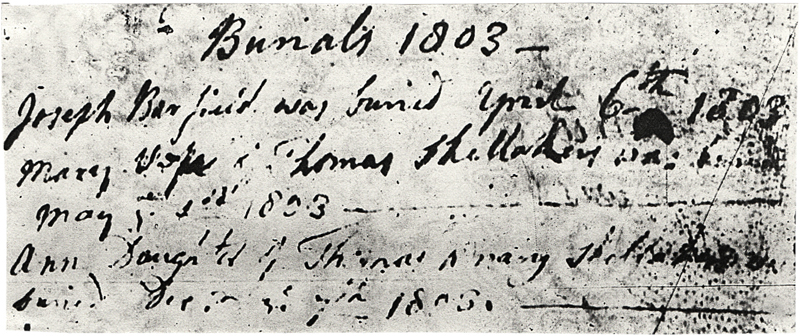 Burials 1803 —
Joseph Barfield was buried April 6th 1803
Mary Wife of Thomas Shellakers was buried
May 1803
Ann Daughter of Thomas & mary
buried Decem 1803.